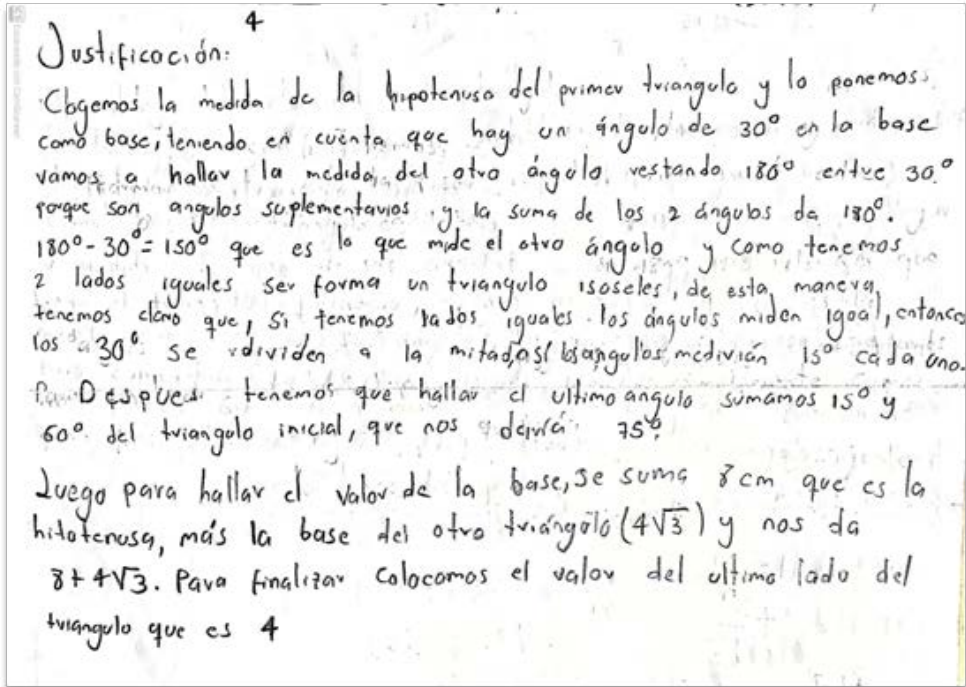 4
Justificación:
Cogemos la medida de la hipotenusa del primer triangulo y lo ponemos
como base, teniendo en cuenta que hay un ángulo de 30° en la base
vamos a hallar la medida del otro ángulo restando 180° entre 30°
porque son angulos suplementarios y la suma de los 2 ángulos da 180°.
180° - 30° = 150° que es lo que mide el otro ángulo y como tenemos
2 lados iguales ser forma un triangulo isoseles, de esta manera
tenemos claro que, si tenemos lados iguales los ángulos miden igual, entonces
los 30° se dividen a la mitad, así los angulos medirian 15° cada uno.
Despues tenemos que hallar el ultimo angulo sumamos 15° y
60° del triangulo inicial, que nos daría 75°.
Luego para hallar el valor de la base, se suma 8cm que es la
hitotenusa, más la base del otro triángulo (4√3) y nos da
8+4√3. Para finalizar colocamos el valor del ultimo lado del
triangulo que es 4